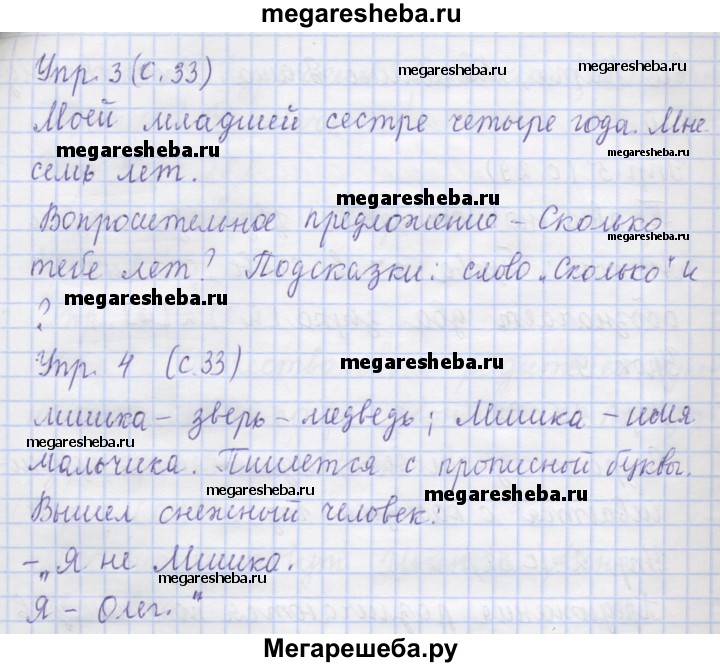 megaresheba.ru
Упр. 3 (с. 33)
megaresheba.ru
Моей младшей сестре четыре года. Мне
megaresheba.ru
megaresheba.ru
семь лет.
megaresheba.ru
Вопросительное предложение – Сколько
megaresheba.ru
тебе лет? Подсказки: слово „Сколько" и
megaresheba.ru
?
Упр. 4 (с. 33)
megaresheba.ru
мишка – зверь – медведь; Мишка – имя
megaresheba.ru
мальчика. Пишется с прописной буквы.
megaresheba.ru
megaresheba.ru
Вышел снежный человек:
– „Я не Мишка.
megaresheba.ru
megaresheba.ru
Я – Олег."
Мегарешеба.ру